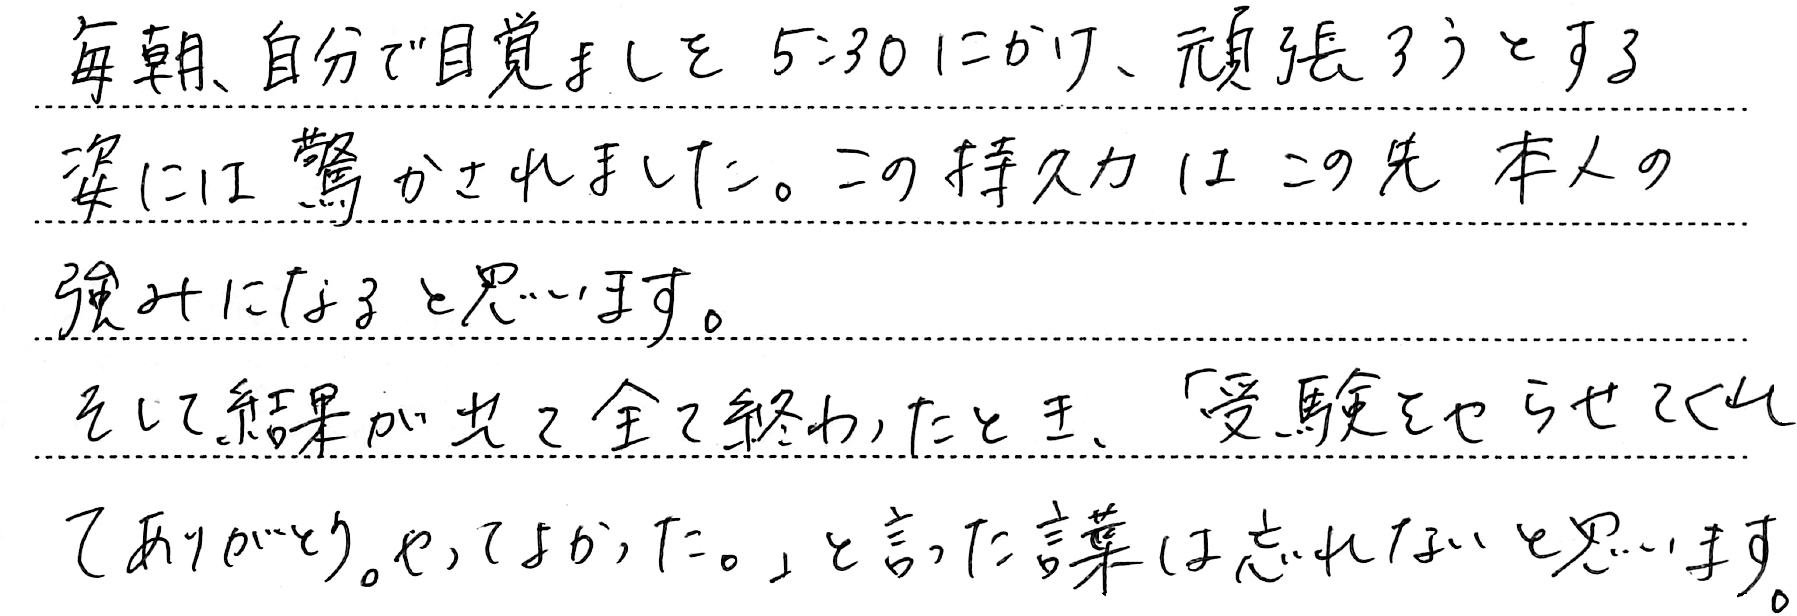 毎朝、自分で目覚ましを 5:30にかけ、頑張ろうとする
姿には驚かされました。この持久力は この先 本人の
強みになると思います。
そして結果が出て全て終わったとき、「受験をやらせてくれ
てありがとう。やってよかった。」と言った言葉は忘れないと思います。